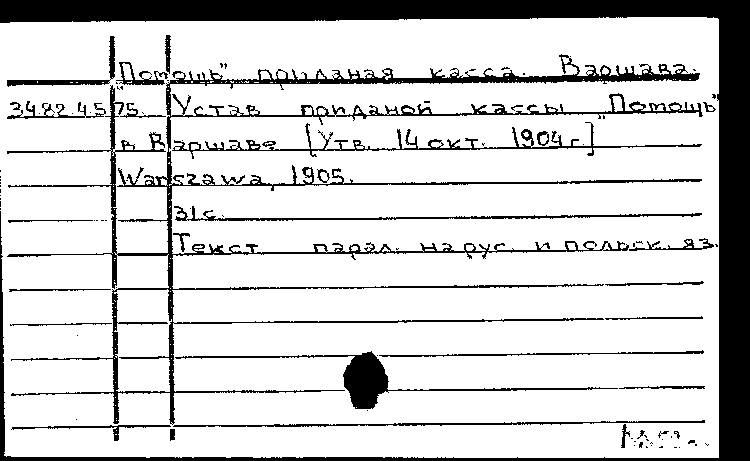 „Помощь”, приданая касса. Варшава.
34.82.4.5 75. Устав приданой кассы „Помощь”
в Варшаве [Утв. 14 окт. 1904 г.]
Warszawa, 1905.
31 с.
Текст парал. на рус. и польск. яз.